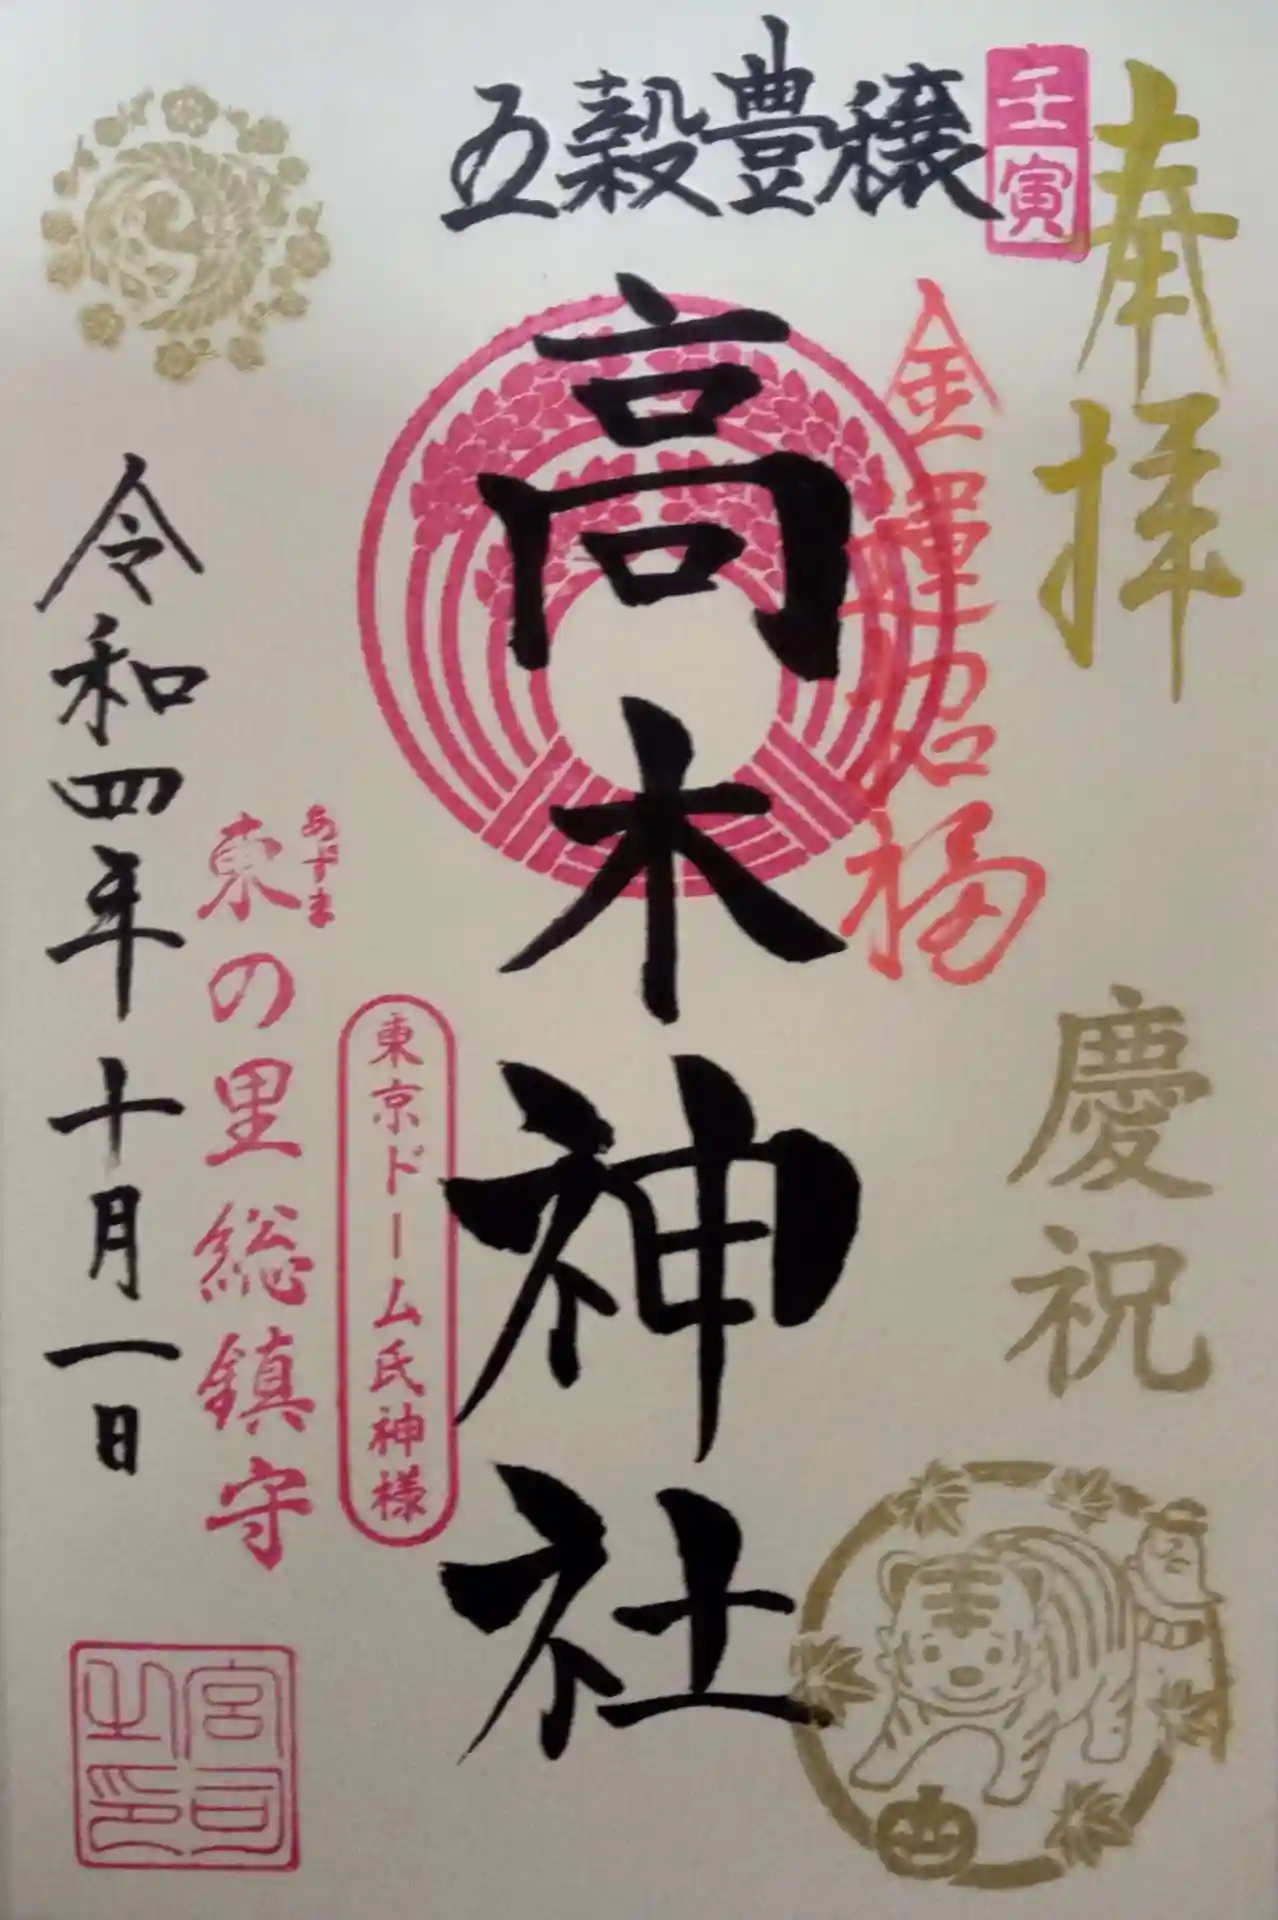 奉拝
慶祝
壬寅
金運招福
五穀豊穣
高木神社
東京ドーム氏神様
あずま
東の里総鎮守
令和四年十月一日
宮司
之印